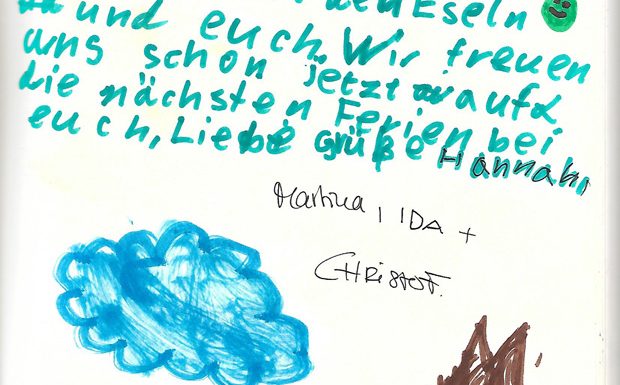 den Eseln
und euch. Wir freuen
uns schon jetzt auf
die nächsten Ferien bei
euch, Liebe Grüße Hannah,
Martina, IDA +
CHRISTOF.